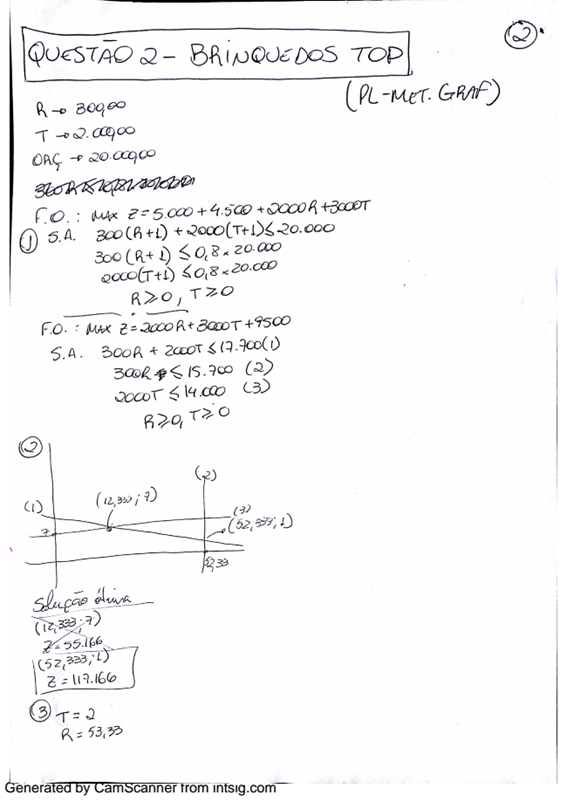 2
QUESTÃO 2 - BRINQUEDOS TOP
(PL-MET. GRAF)
R → 300,00
T → 2.000,00
ORÇ → 20.000,00
F.O.: MAX Z = 5.000 + 4.500 + 2000R + 3000T
1 S.A. 300(R+1) + 2000(T+1) ≤ 20.000
300(R+1) ≤ 0,8 × 20.000
2000(T+1) ≤ 0,8 × 20.000
R ≥ 0, T ≥ 0
F.O.: MAX Z = 2000R + 3000T + 9500
S.A. 300R + 2000T ≤ 17.700 (1)
300R ≤ 15.700 (2)
2000T ≤ 14.000 (3)
R ≥ 0, T ≥ 0
2
(2)
(1) (12,333; 7) (3)
7 (52,333; 1)
52,33
Solução ótima
(12,333; 7)
Z = 55.166
(52,333; 1)
Z = 117.166
3 T = 2
R = 53,33
Generated by CamScanner from intsig.com